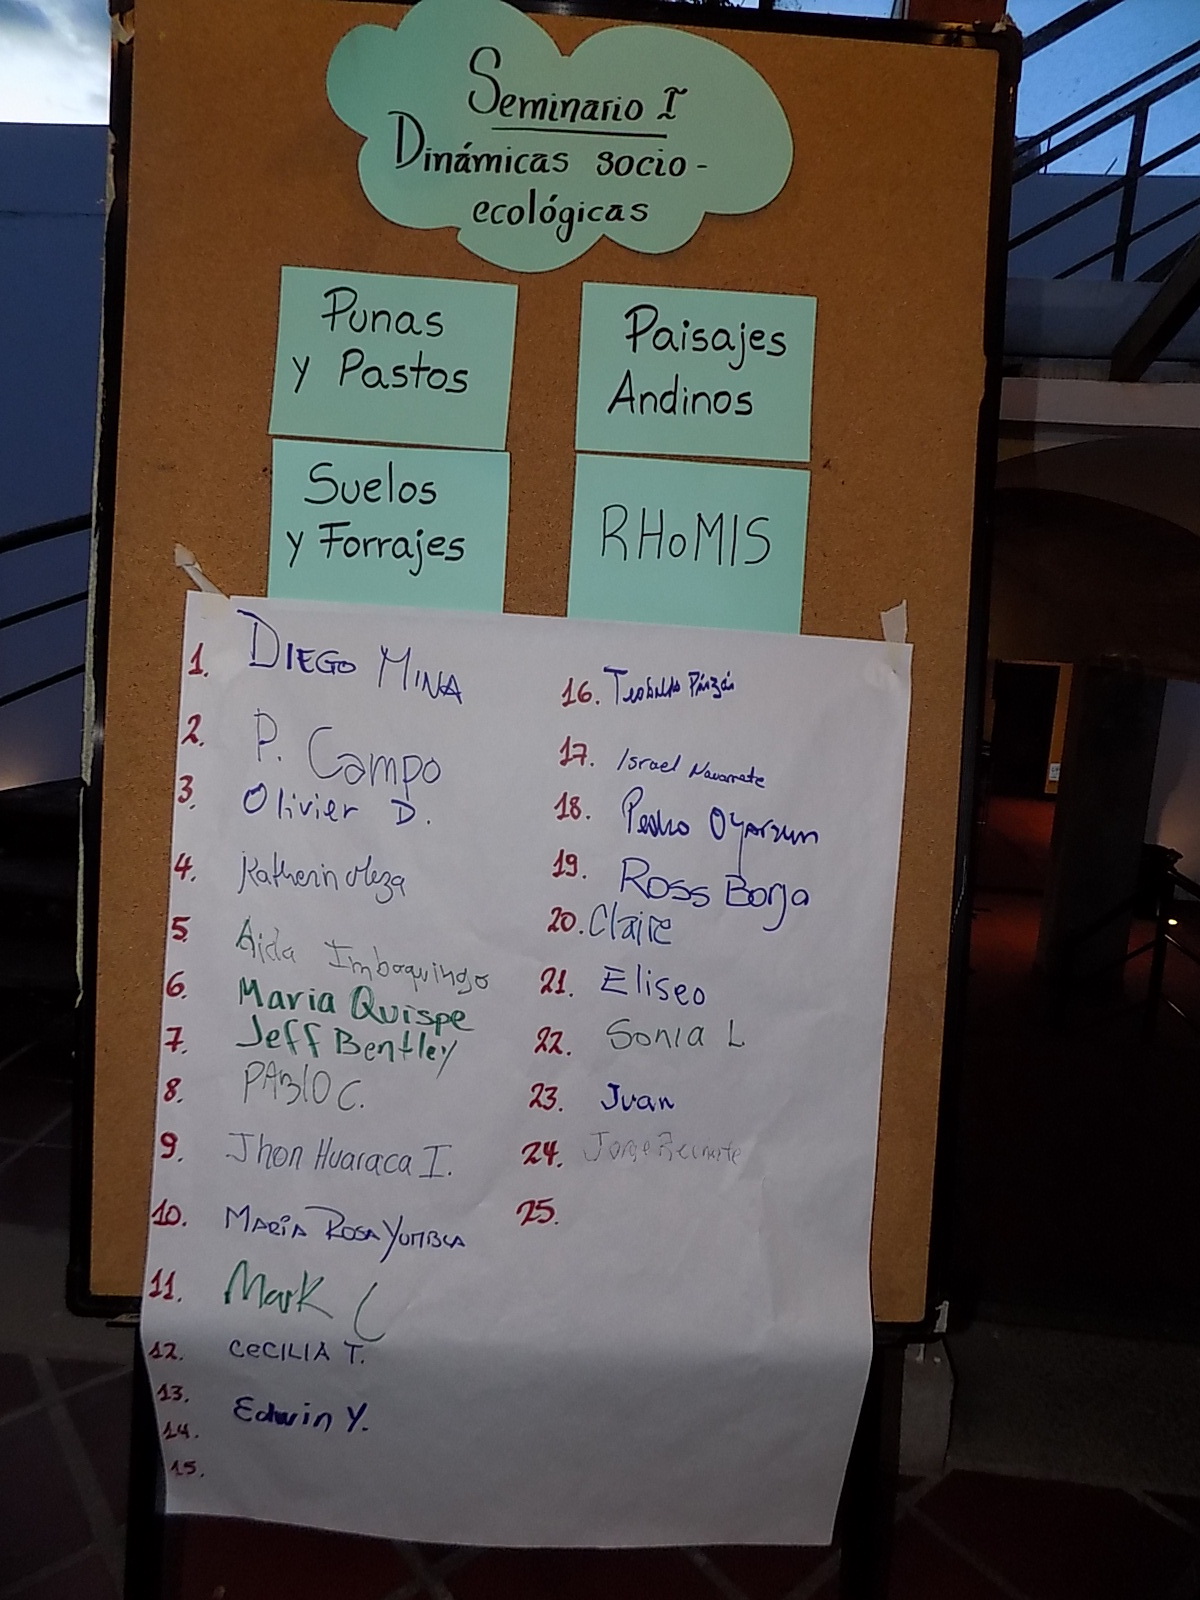 Seminario I
Dinámicas socio-
ecológicas
Punas
y Pastos
Paisajes
Andinos
Suelos
y Forrajes
RHoMIS
1. DIEGO MINA
2. P. Campo
3. Olivier D.
4. Katherin Meza
5. Aida Imbaquingo
6. Maria Quispe
7. Jeff Bentley
8. PABlO C.
9. Jhon Huaraca I.
10. MARÍA ROSA YUMBLA
11. Mark C
12. CECILIA T.
13. Edwin Y.
14.
15.
16.
17. Israel Navarrete
18. Pedro Oyarzun
19. Ross Borja
20. Claire
21. Eliseo
22. Sonia L
23. Juan
24. Jorge
25.